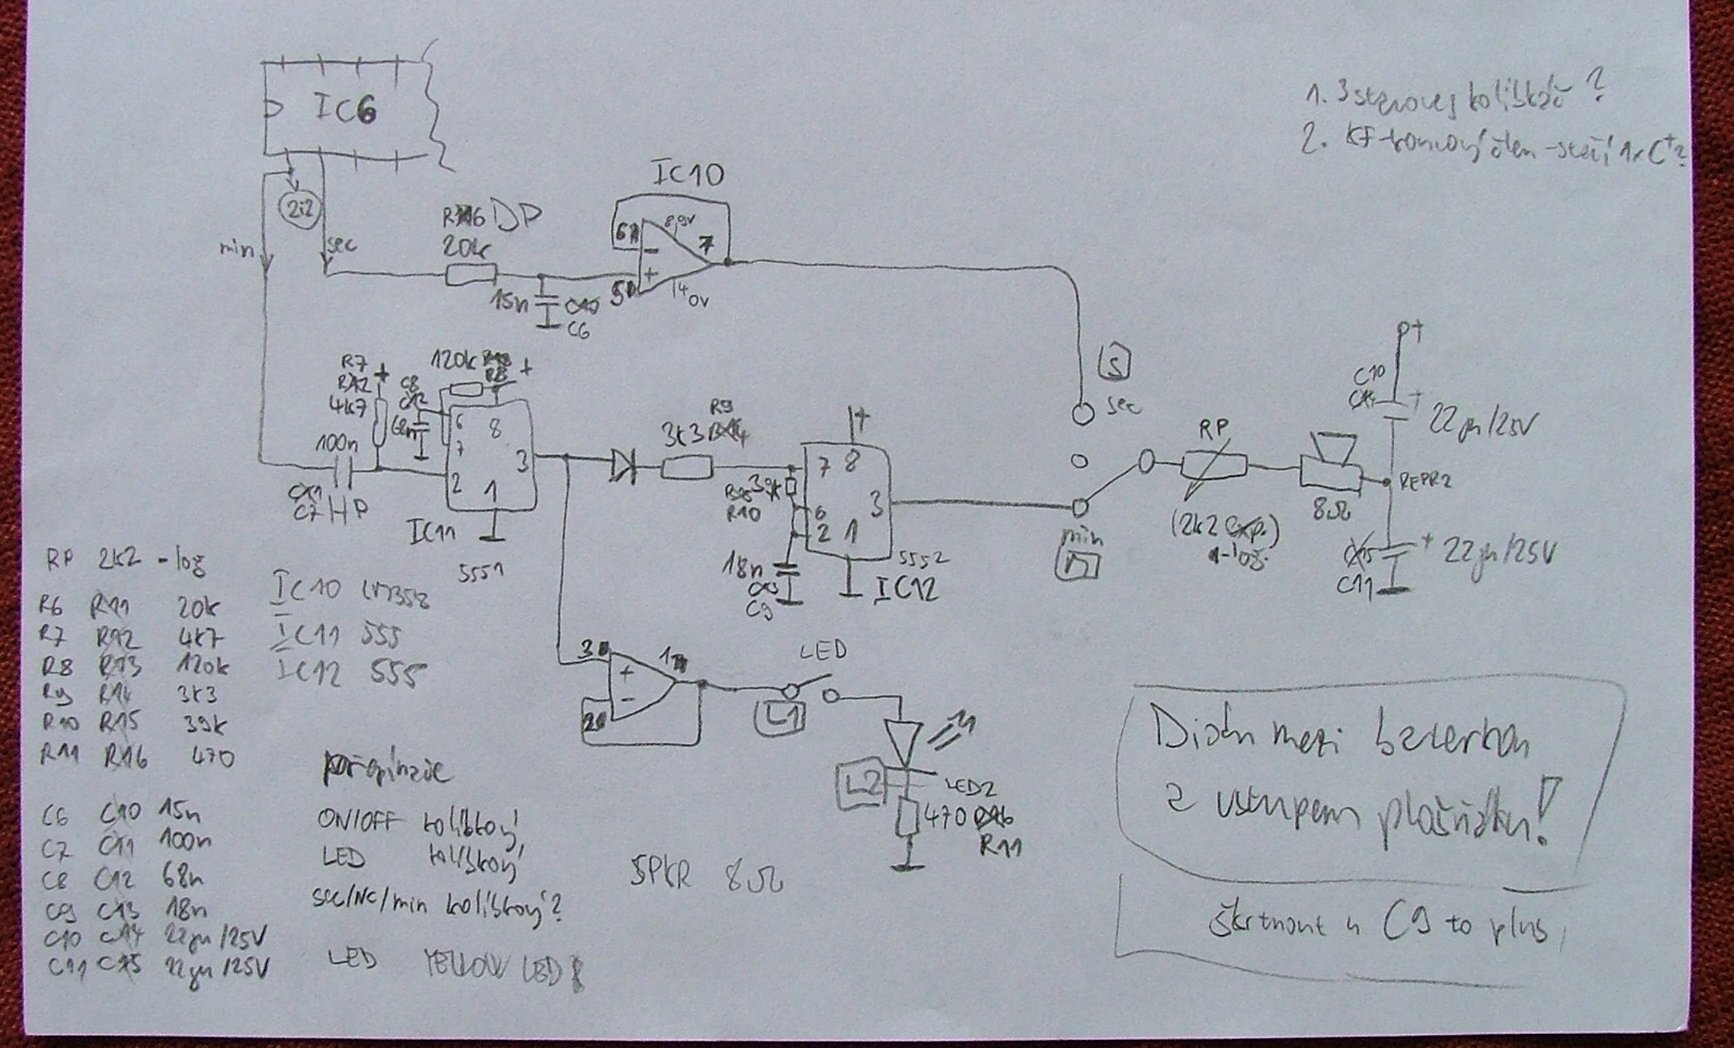 1. 3
2. KF
IC6
2i2
min
sec
R6 DP
20k
15n
C6
IC10
6
8,9V
7
5
4 0V
R7
R12
4k7
+
120k
R8
+
C8
C12
68n
100n
C11
C7 HP
6
7
8
3
2
1
IC11
5551
R9
3k3 R14
39k
R10
7
8
+
6
2
1
3
5552
IC12
18n
C9
S
sec
min
RP
(2k2 exp.)
8Ω
P+
C10
C14
+
22µ/25V
REPR2
C15
+
22µ/25V
C11
RP 2k2 -log
R6 R11 20k
R7 R12 4k7
R8 R13 120k
R9 R14 3k3
R10 R15 39k
R11 R16 470
IC10 LM358
IC11 555
IC12 555
C6 C10 15n
C7 C11 100n
C8 C12 68n
C9 C13 18n
C10 C14 22µ/25V
C11 C15 22µ/25V
3
1
2
LED
L1
L2
LED2
470 R16
R11
přepínače
ON/OFF kolíbkový
LED kolíbkový
sec/NC/min kolíbkový?
LED YELLOW LED
SPKR 8Ω
Diodu mezi bzerkou
z vstupem plošňáku!
škrtnout u C9 to plus,